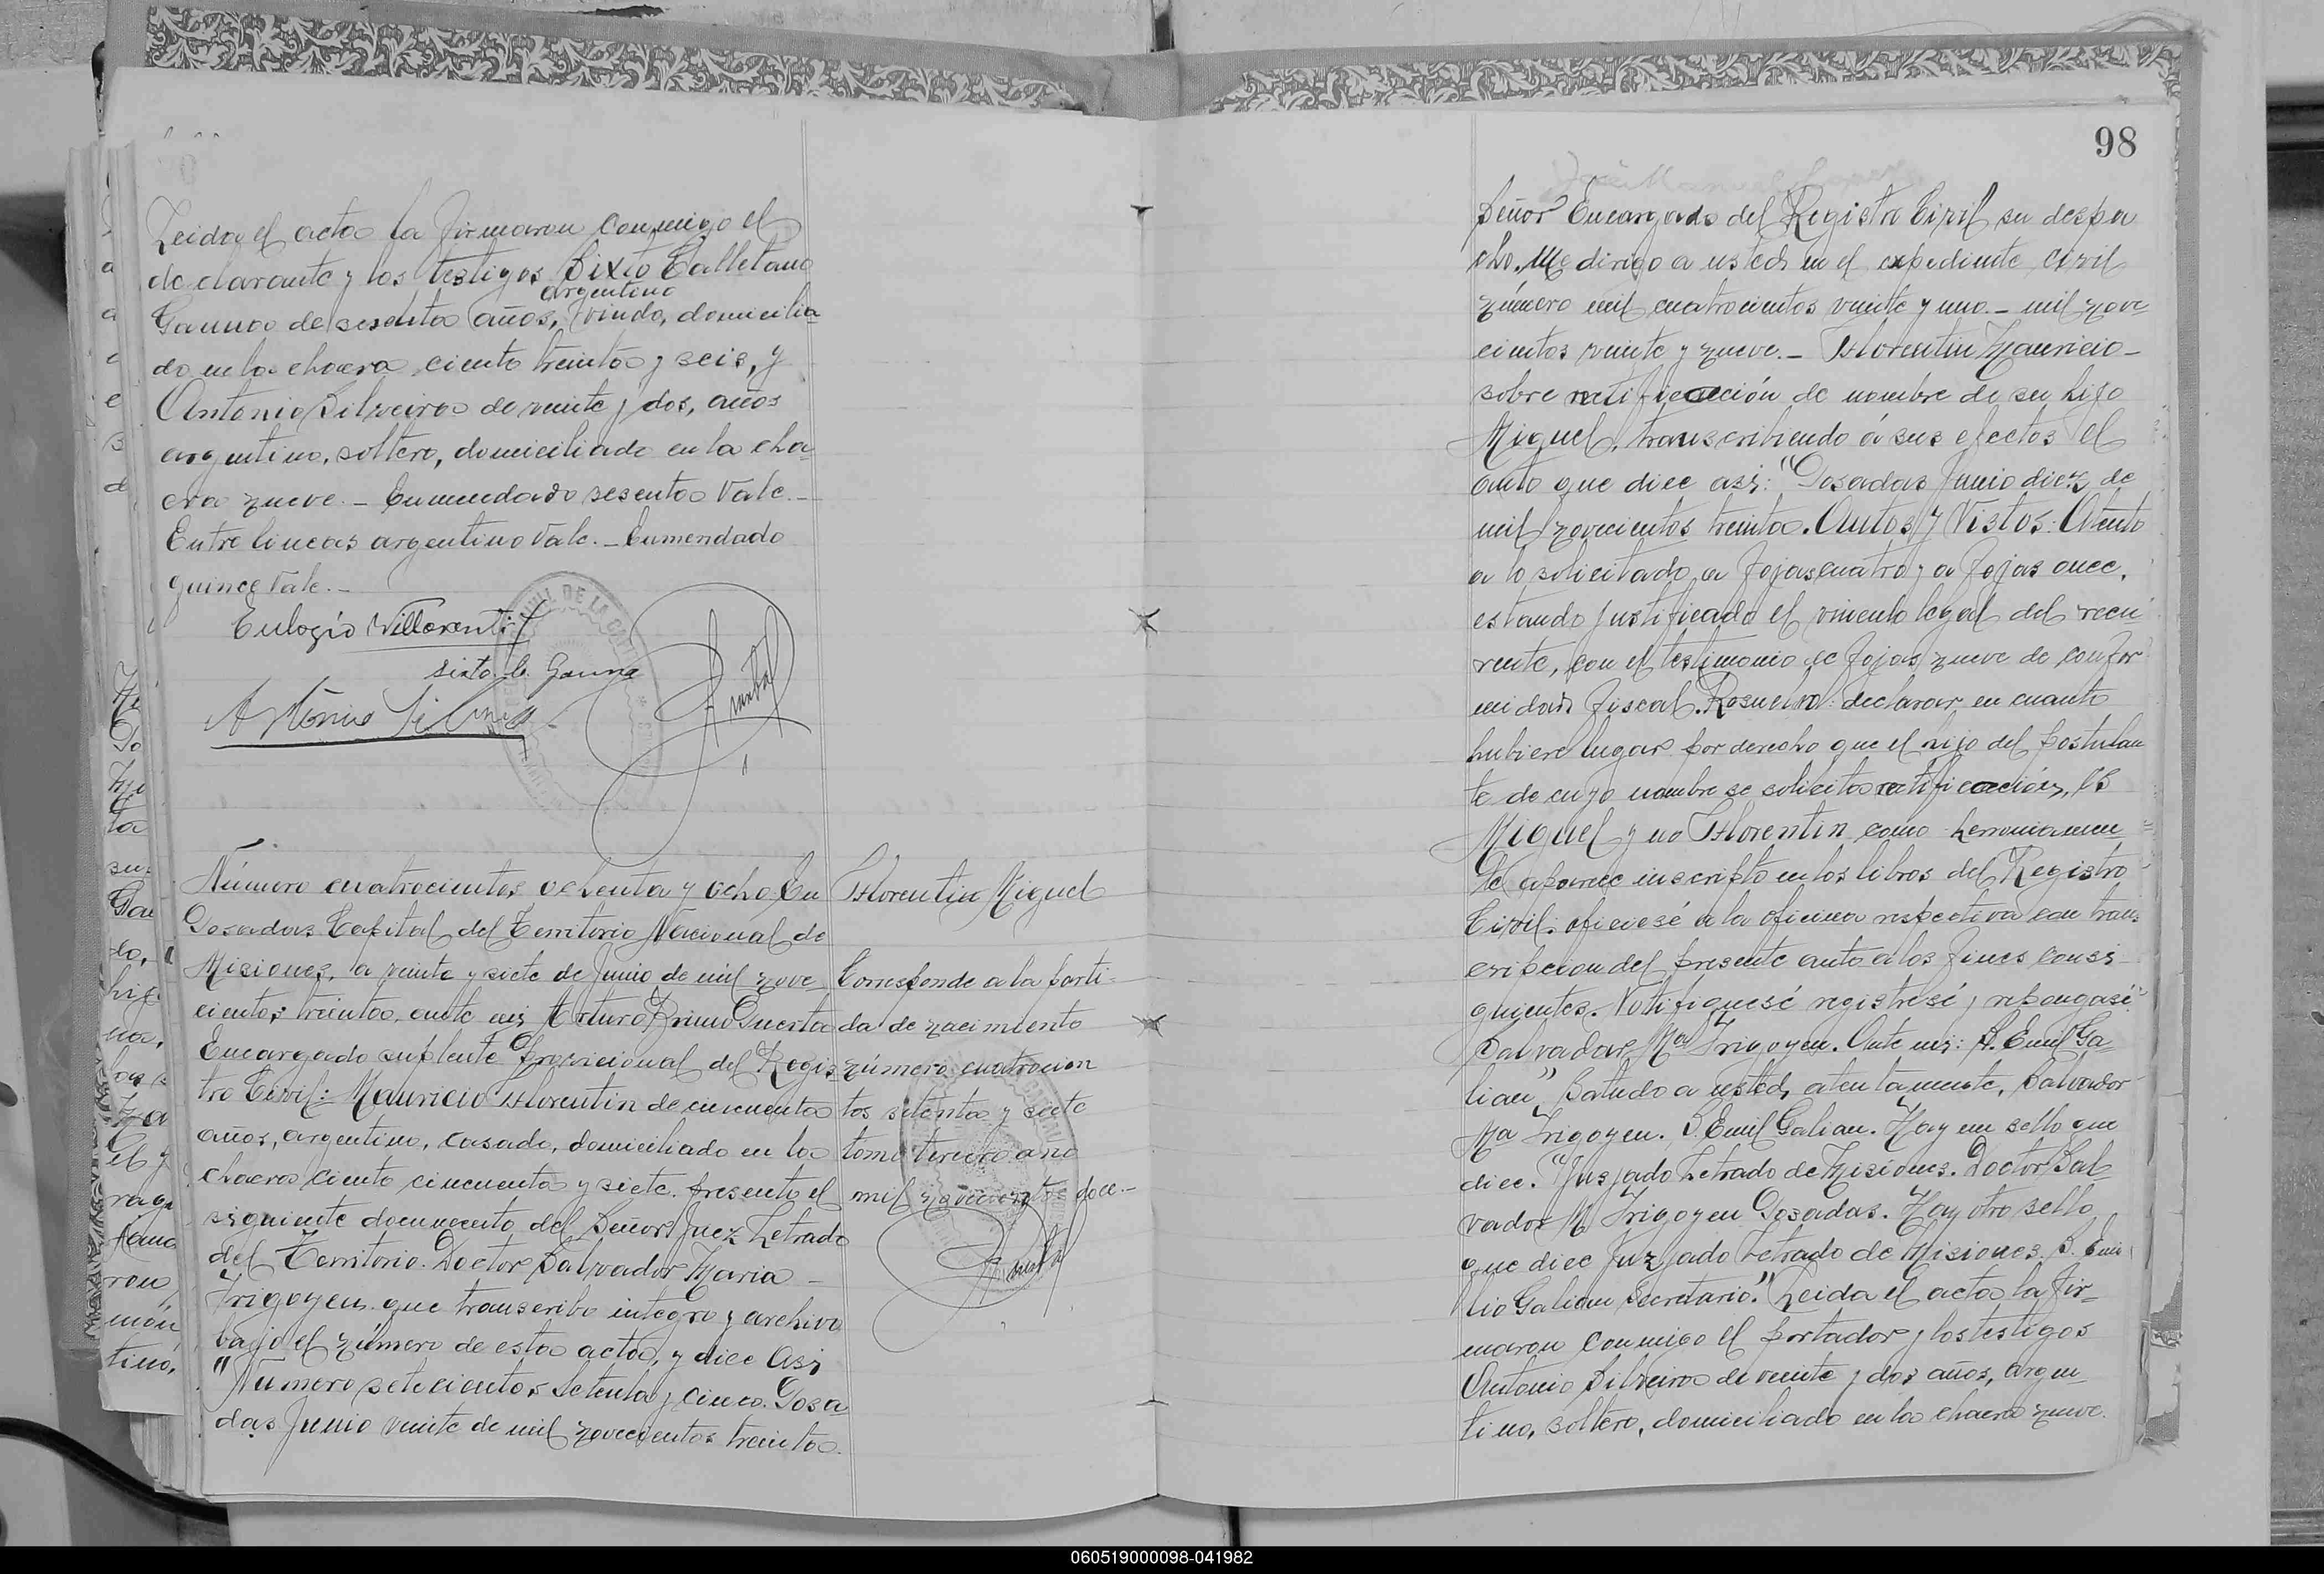 Leida el acta la firmaron conmigo el
declarante y los testigos Sixto Calletano
argentino
Gauna de sesenta años, viudo, domicilia
do en la chacra ciento treinta y seis, y
Antonio Silveira de veinte y dos, años
argentino, soltero, domiciliado en la cha
cra nueve. - Enmendado sesenta Vale. -
Entre lineas argentino Vale. - Enmendado
quince Vale. -
Eulogio
Sixto C. Gauna
Antonio
Número cuatrocientos ochenta y ocho. En
Posadas Capital del Territorio Nacional de
Misiones, a veinte y siete de Junio de mil nove
cientos treinta, ante mi, Arturo Primo Puerta
Encargado suplente Provicional del Regis
tro Civil: Mauricio Florentin de cincuenta
años, argentino, casado, domiciliado en la
chacra ciento cincuenta y siete. presenta el
siguiente documento del Señor Juez Letrado
del Territorio. Doctor Salvador Maria -
Irigoyen que transcribo integro y archivo
bajo el número de esta acta, y dice Asi
"Número setecientos setenta y cinco. Posa
das Junio veinte de mil novecientos treinta.
Florentin Miguel
Corresponde a la parti-
da de nacimiento
número cuatrocien
tos setenta y siete
tomo tercero año
mil novecientos doce. -
98
Señor Encargado del Registro Civil su despa
cho. Me dirigo a usted, en el expediente civil
número mil cuatrocientos veinte y uno. - mil nove
cientos veinte y nueve. - Florentin Mauricio -
sobre rectificación de nombre de su hijo
Miguel, transcribiendo á sus efectos el
auto que dice asi: "Posadas Junio diez de
mil novecientos treinta. Autos y Vistos: Atento
a lo solicitado a fojas cuatro y a fojas once,
estando justificado el vinculo legal del recu
rrente, con el testimonio de fojas nueve de confor
midad fiscal. Resuelvo: declarar en cuanto
hubiere lugar por derecho que el hijo del postulan
te de cuyo nombre se solicita rectificación, es
Miguel y no Florentin como
te aparece inscripto en los libros del Registro
Civil: oficiesé a la oficina respectiva con trans
cripcion del presente auto a los fines consi-
guientes. Notifiquesé registresé y repongasé"
Salvador Ma Irigoyen. Ante mi: B. Emil Ga-
lian" Saludo a usted, atentamente, Salvador
Ma Irigoyen. B. Emil Galian. Hay un sello que
dice. "Jusjado Letrado de Misiones. Doctor Sal
vador M Irigoyen Posadas. Hay otro sello
que dice Juzjado Letrado de Misiones. B. Emi
lio Galian Secretario." Leida el acta la fir-
maron conmigo el portador y los testigos
Antonio Silveira de veinte y dos años, argen
tino, soltero, domiciliado en la chacra nueve.
060519000098-041982